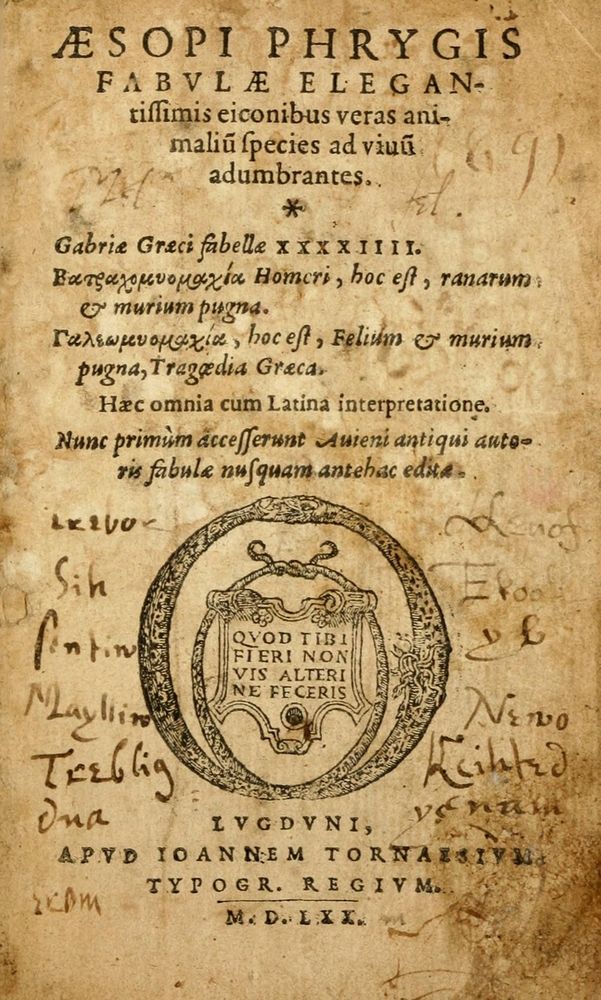 ÆSOPI PHRYGIS
FABVLÆ ELEGAN-
tiſſimis eiconibus veras ani-
maliũ ſpecies ad viuũ
adumbrantes.
*
Gabriæ Græci fabellæ XXXXIIII.
Βατραχομυομαχία Homeri, hoc eſt, ranarum
& murium pugna.
Γαλεωμυομαχία, hoc eſt, Felium & murium
pugna, Tragœdia Græca.
Hæc omnia cum Latina interpretatione.
Nunc primùm accesſerunt Auieni antiqui auto-
ris fabulæ nuſquam antehac editæ.
QVOD TIBI
FIERI NON
VIS ALTERI
NE FECERIS
LVGDVNI,
APVD IOANNEM TORNAESIVM
TYPOGR. REGIVM.
M. D. LXX.